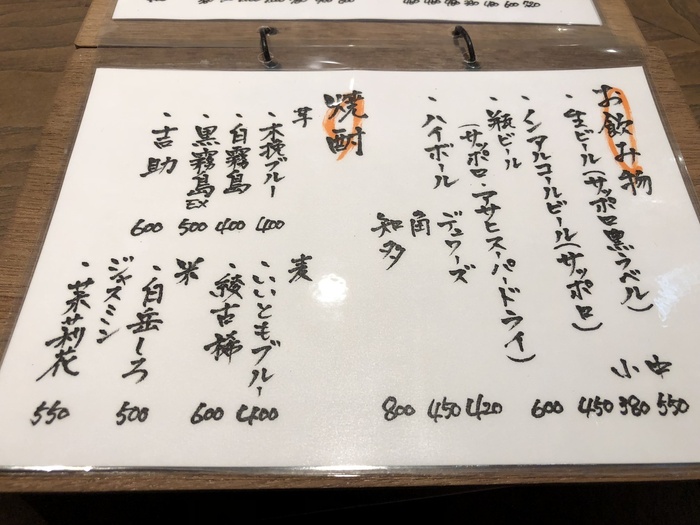 お飲み物
・生ビール(サッポロ黒ラベル)
中 550
小 380
・ノンアルコールビール(サッポロ) 450
・瓶ビール
(サッポロ・アサヒスーパードライ) 600
・ハイボール
デュワーズ 420
角 450
知多 800
焼酎
芋
・木挽ブルー 400
・白霧島 400
・黒霧島EX 500
・吉助 600
麦
・いいともブルー 400
・綾古稀 600
米
・白岳しろ 500
ジャスミン
・茉莉花 550